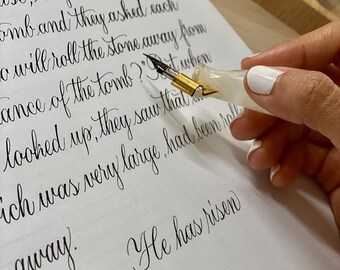 omb and they asked each
o will roll the stone away from
tance of the tomb? But when
looked up, they saw that the
ich was very large, had been rolle
away.
"He has risen